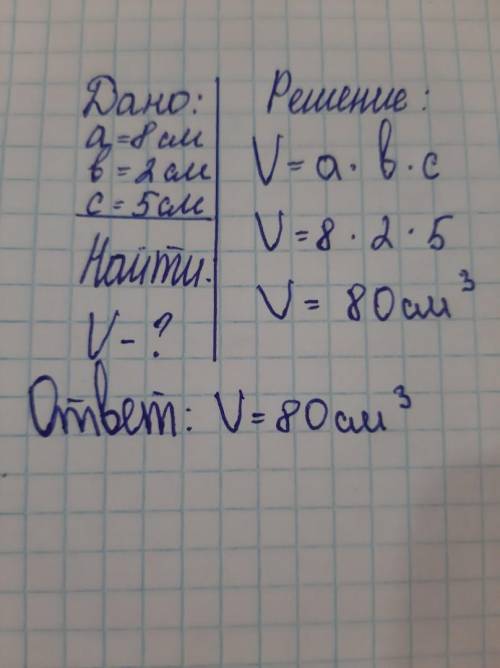 Дано:
а=8см
в=2см
с=5см
Найти.
V-?
Решение:
V=а·в·с
V=8·2·5
V= 80см³
Ответ: V=80см³